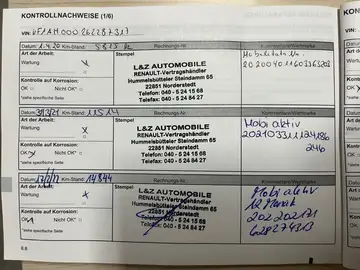 KONTROLLNACHWEISE (1/6)
VIN: VF1AH000262287313
Datum: 1.4.20 Km-Stand: 5813 Rechnungs-Nr.: Kommentare/Wertmarke
Art der Arbeit: Stempel
Wartung
L&Z AUTOMOBILE
RENAULT-Vertragshändler
Hummelsbütteler Steindamm 65
22851 Norderstedt
Telefon: 040 - 5 24 15 68
Telefax: 040 - 5 24 84 27
Kontrolle auf Korrosion:
OK Nicht OK*
*siehe spezifische Seite
Datum: Km-Stand: 11514 Rechnungs-Nr.: Kommentare/Wertmarke
Art der Arbeit: Stempel
Wartung x
L&Z AUTOMOBILE
RENAULT-Vertragshändler
Hummelsbütteler Steindamm 65
22851 Norderstedt
Telefon: 040 - 5 24 15 68
Telefax: 040 - 5 24 84 27
Mobi aktiv
246
Kontrolle auf Korrosion:
OK Nicht OK*
*siehe spezifische Seite
Datum: Km-Stand: 14844 Rechnungs-Nr.: Kommentare/Wertmarke
Art der Arbeit: Stempel
Wartung x
L&Z AUTOMOBILE
RENAULT-Vertragshändler
Hummelsbütteler Steindamm 65
22851 Norderstedt
Telefon: 040 - 5 24 15 68
Telefax: 040 - 5 24 84 27
Mobi aktiv
12 Monate
Kontrolle auf Korrosion:
OK Nicht OK*
*siehe spezifische Seite
6.8